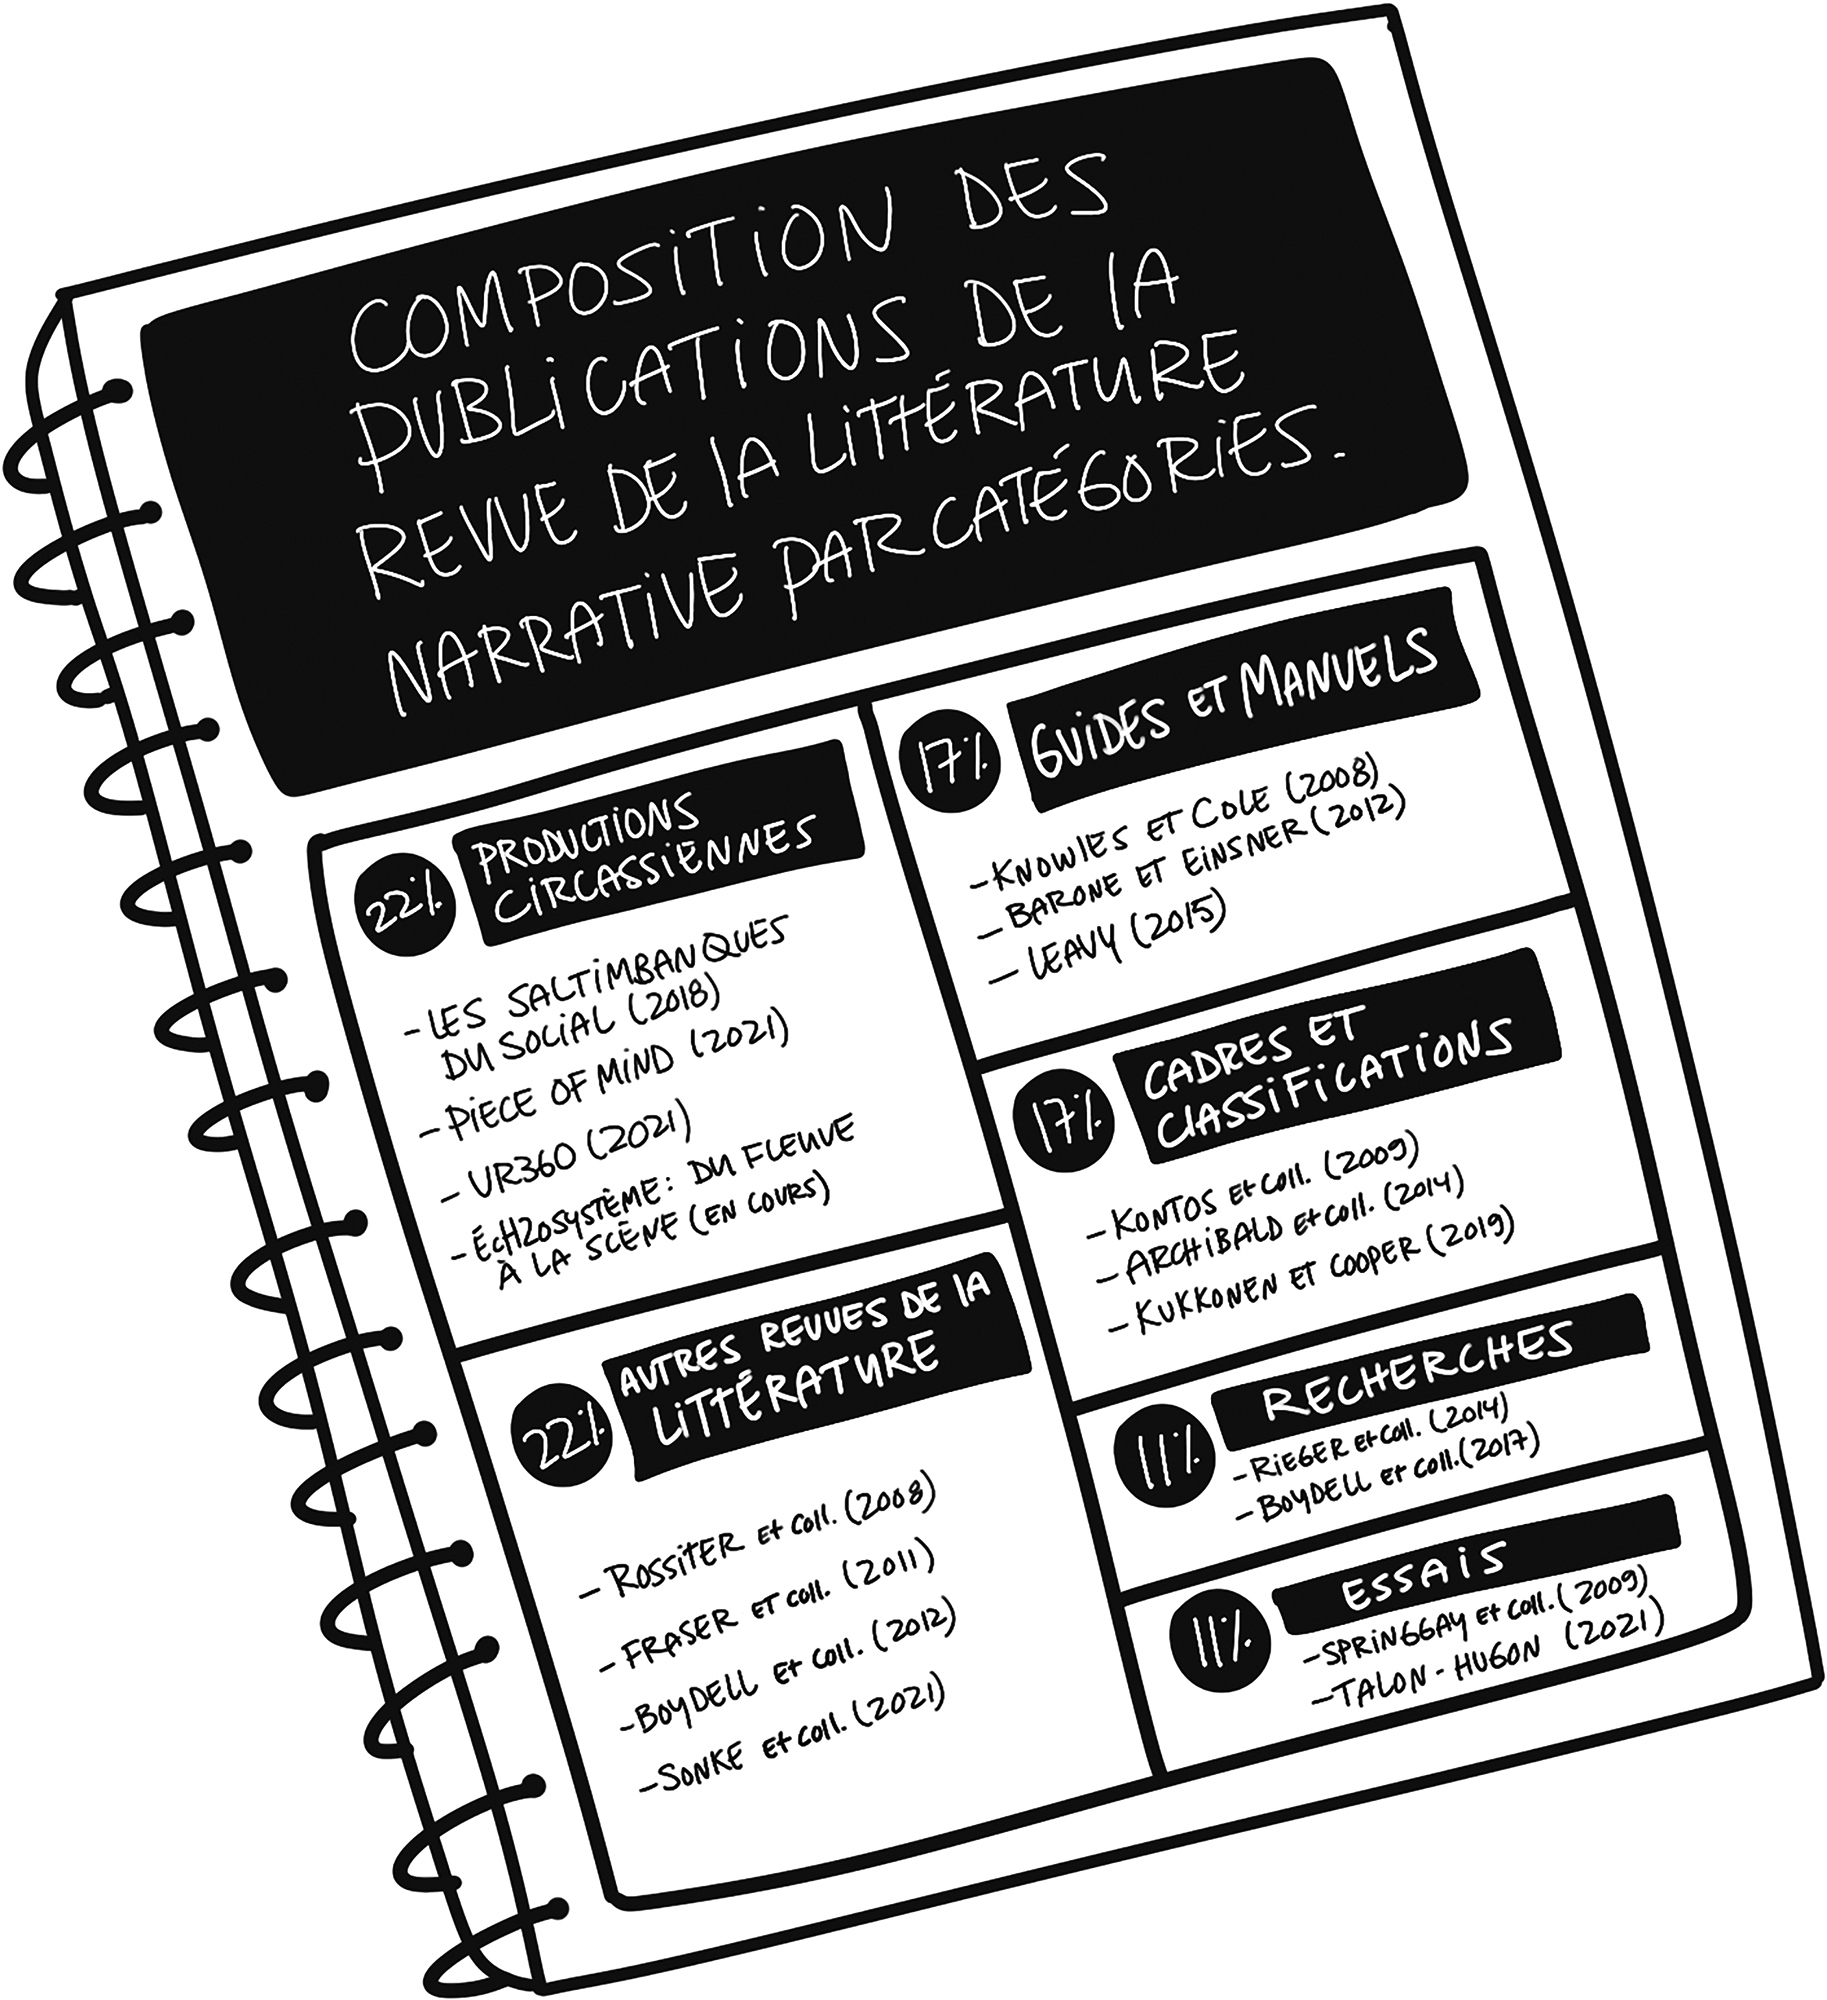 COMPOSITION DES
PUBLICATIONS DE LA
REVUE DE LA LITTÉRATURE
NARRATIVE PAR CATÉGORIES.
22%
PRODUCTIONS
CIRCASSIENNES
- LES SALTIMBANQUES
DU SOCIAL (2018)
- PIECE OF MIND (2021)
- VR360 (2021)
- ÉCH2OSYSTÈME: DU FLEUVE
À LA SCÈNE (EN COURS)
22%
AUTRES REVUES DE LA
LITTÉRATURE
- ROSSITER et coll. (2008)
- FRASER ET coll. (2011)
- BOYDELL et coll. (2012)
- SONKE et coll. (2021)
17%
GUIDES ET MANUELS
- KNOWLES ET COLE (2008)
- BARONE ET EINSNER (2012)
- LEAVY (2015)
17%
CADRES ET
CLASSIFICATIONS
- KONTOS et coll. (2009)
- ARCHIBALD et coll. (2014)
- KUKKONEN ET COOPER (2019)
11%
RECHERCHES
- RIEGER et coll. (2014)
- BOYDELL et coll. (2017)
11%
ESSAIS
- SPRINGGAY et coll. (2009)
- TALON-HUGON (2021)